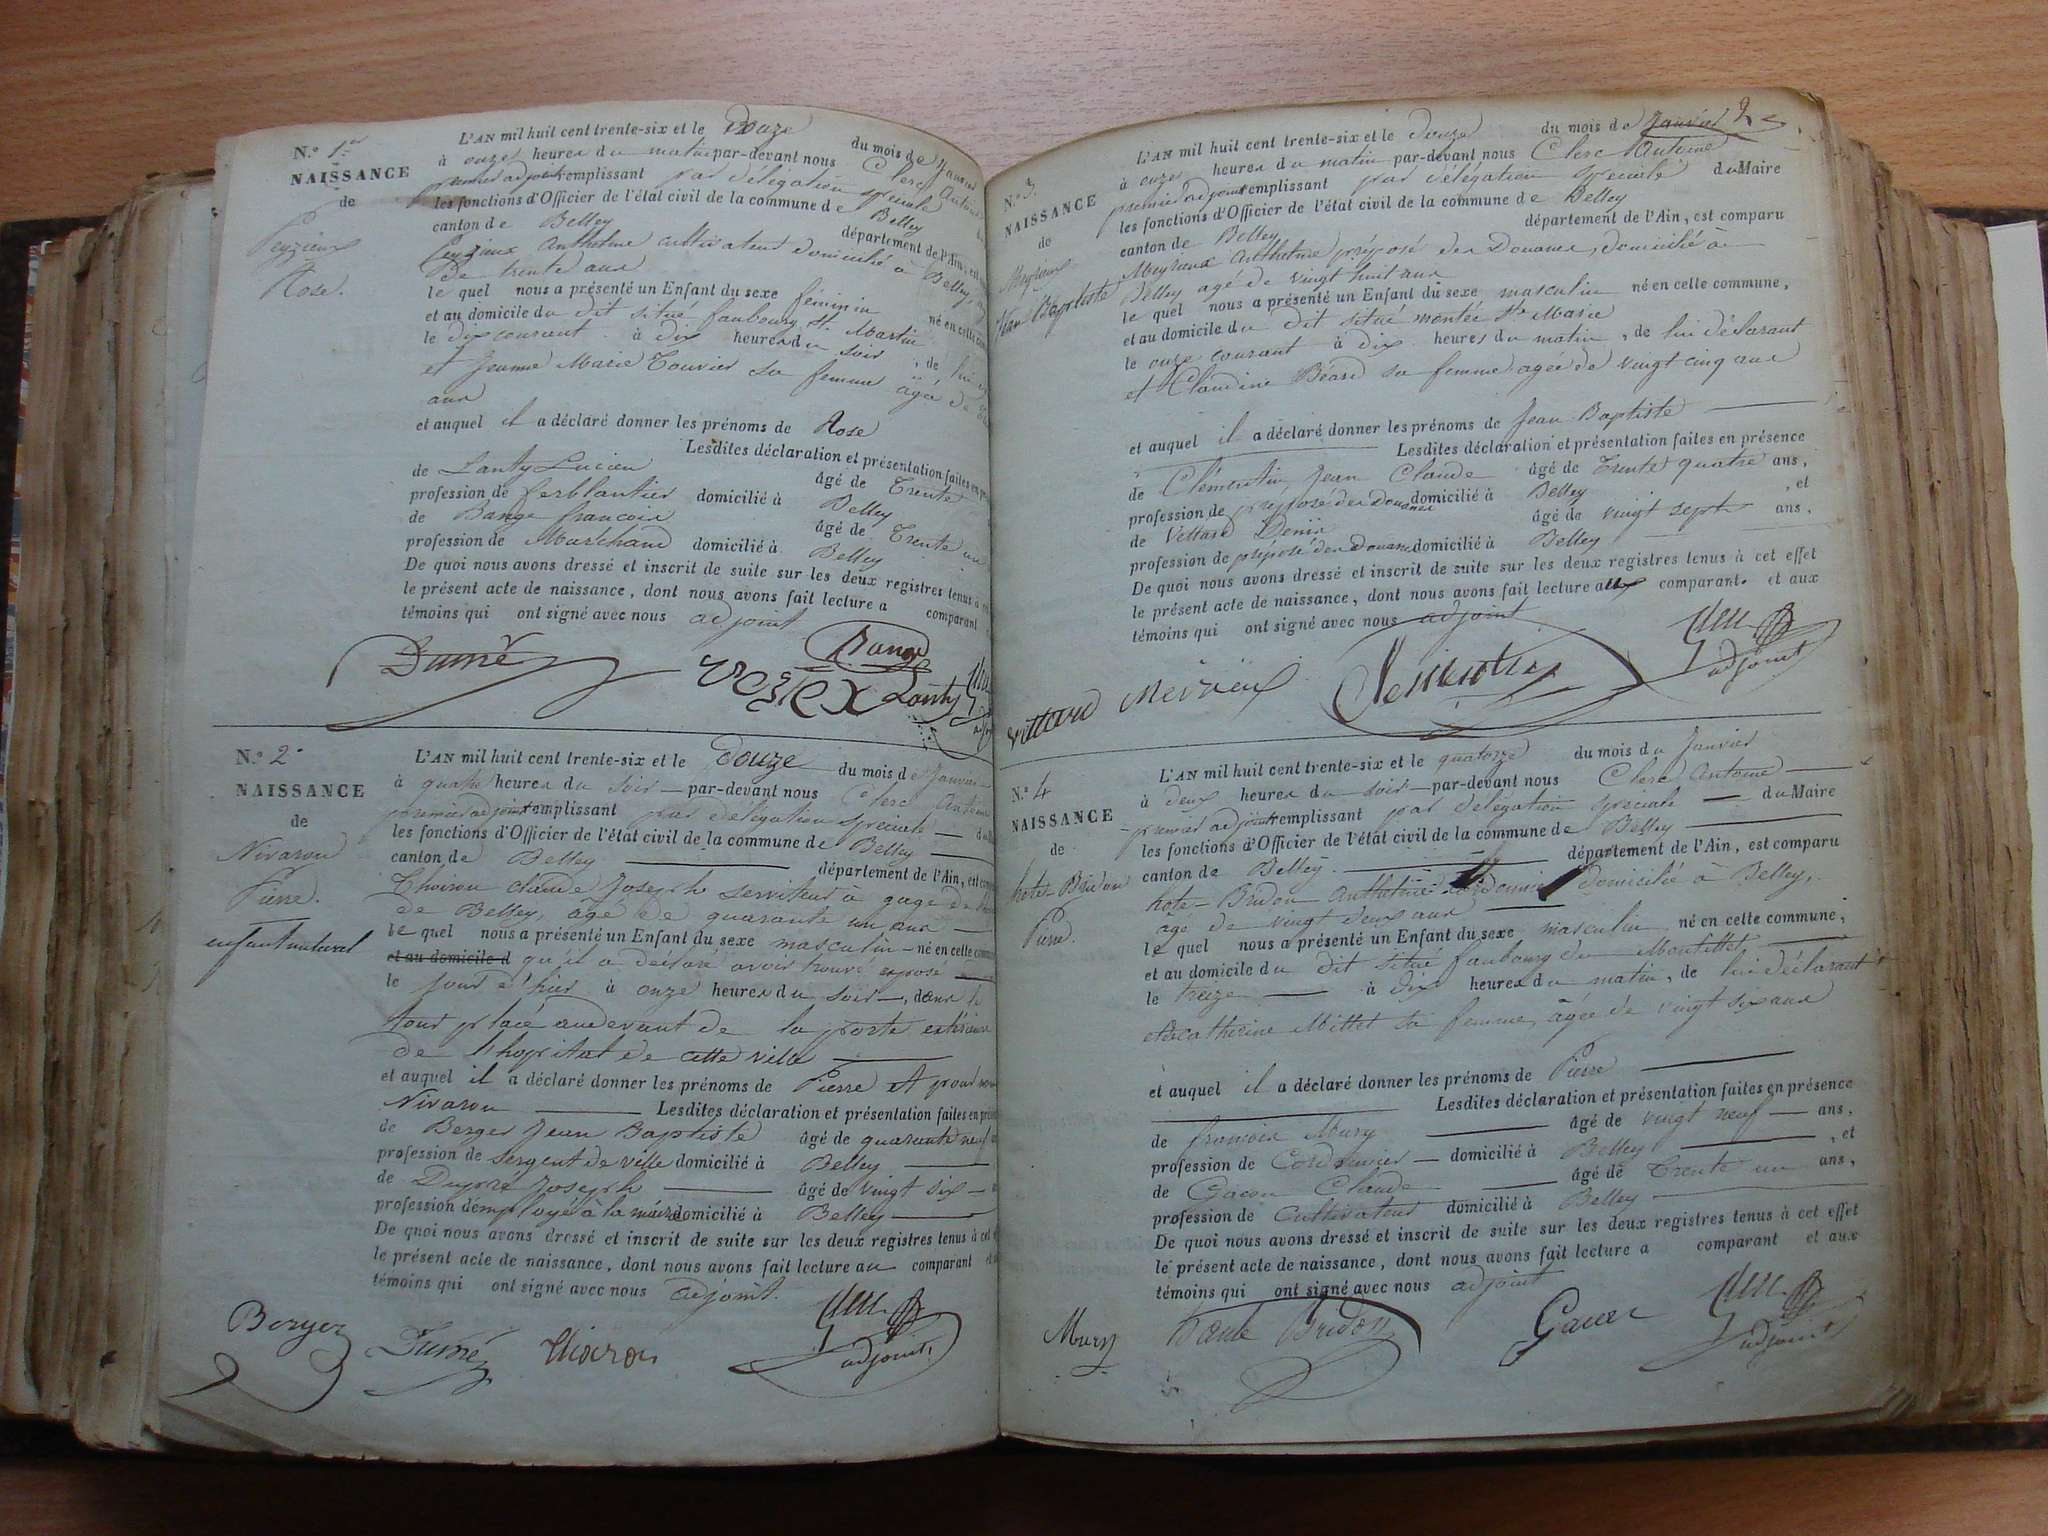 N.º 1er
NAISSANCE
de
Peyzieux
Rose.
L'AN mil huit cent trente-six et le douze du mois de Janvier
à onze heures du matin par-devant nous Clerc Antoine
premier adjoint remplissant par délégation spéciale
les fonctions d'Officier de l'état civil de la commune de Belley
canton de Belley département de l'Ain, est
Peyzieux Anthelme cultivateur domicilié à Belley,
de trente ans
le quel nous a présenté un Enfant du sexe féminin né en cette
et au domicile du dit situé faubourg St. Martin
le dix courant à dix heures du soir, de lui
et Jeanne Marie Touvier sa femme âgée de
ans
et auquel il a déclaré donner les prénoms de Rose
Lesdites déclaration et présentation faites en
de Lanty Lucien âgé de Trente
profession de ferblantier domicilié à Belley
de Bange françois âgé de Trente un
profession de Marchand domicilié à Belley
De quoi nous avons dressé et inscrit de suite sur les deux registres tenus à
le présent acte de naissance, dont nous avons fait lecture a comparant
témoins qui ont signé avec nous adjoint
Bange
Lanty
N.º 2
NAISSANCE
de
Nivaron
Pierre.
enfant naturel
L'AN mil huit cent trente-six et le Douze du mois de Janvier
à quatre heures du soir par-devant nous Clerc Antoine
premier adjoint remplissant par délégation spéciale
les fonctions d'Officier de l'état civil de la commune de Belley
canton de Belley département de l'Ain, est
Thoiron claude Joseph serviteur à gage de
de Belley, âgé de quarante un ans
le quel nous a présenté un Enfant du sexe masculin né en cette
et au domicile d qu'il a déclaré avoir trouvé exposé
le jour d'hier à onze heures du soir, dans le
tour placé audevant de la porte extérieure
de l'hopital de cette ville
et auquel il a déclaré donner les prénoms de Pierre et pour nom
Nivaron Lesdites déclaration et présentation faites en
de Berger Jean Baptiste âgé de quarante neuf
profession de sergent de ville domicilié à Belley
de Dupra Joseph âgé de vingt six
profession d'employé à la mairie domicilié à Belley
De quoi nous avons dressé et inscrit de suite sur les deux registres tenus à cet
le présent acte de naissance, dont nous avons fait lecture au comparant
témoins qui ont signé avec nous adjoint.
Berger
adjoint.
2
N.º 3
NAISSANCE
de
Meyrieux
Jean Baptiste
L'AN mil huit cent trente-six et le douze du mois de Janvier
à onze heures du matin par-devant nous Clerc Antoine
premier adjoint remplissant par délégation spéciale du Maire
les fonctions d'Officier de l'état civil de la commune de Belley
canton de Belley département de l'Ain, est comparu
Meyrieux Anthelme préposé des Douanes, domicilié à
Belley agé de vingt huit ans
le quel nous a présenté un Enfant du sexe masculin né en cette commune,
et au domicile du dit situé montée Ste Marie
le onze courant à dix heures du matin, de lui déclarant
et Claudine Béard sa femme agée de vingt cinq ans
et auquel il a déclaré donner les prénoms de Jean Baptiste
Lesdites déclaration et présentation faites en présence
de Clémentin Jean Claude âgé de Trente quatre ans,
profession de préposé des Douanes domicilié à Belley, et
de Vettard Denis âgé de vingt sept ans,
profession de préposé des Douanes domicilié à Belley
De quoi nous avons dressé et inscrit de suite sur les deux registres tenus à cet effet
le présent acte de naissance, dont nous avons fait lecture aux comparant. et aux
témoins qui ont signé avec nous adjoint
adjoint
vettard
N.º 4
NAISSANCE
de
hote-Bridon
Pierre.
L'AN mil huit cent trente-six et le quatorze du mois du Janvier
à deux heures du soir par-devant nous Clerc Antoine
premier adjoint remplissant par délégation spéciale du Maire
les fonctions d'Officier de l'état civil de la commune de Belley
canton de Belley département de l'Ain, est comparu
hote-Bridon Anthelme cordonnier domicilié à Belley,
âgé de vingt deux ans
le quel nous a présenté un Enfant du sexe masculin né en cette commune,
et au domicile du dit situé faubourg du Montillet
le treize à dix heures du matin, de lui déclarant
et de catherine Millet sa femme, âgée de vingt six ans
et auquel il a déclaré donner les prénoms de Pierre
Lesdites déclaration et présentation faites en présence
de françois Mury âgé de vingt neuf ans,
profession de Cordonnier domicilié à Belley, et
de Gacon Claude âgé de Trente un ans,
profession de Cultivateur domicilié à Belley
De quoi nous avons dressé et inscrit de suite sur les deux registres tenus à cet effet
le présent acte de naissance, dont nous avons fait lecture a comparant et aux
témoins qui ont signé avec nous adjoint
Mury
Bridon
adjoint